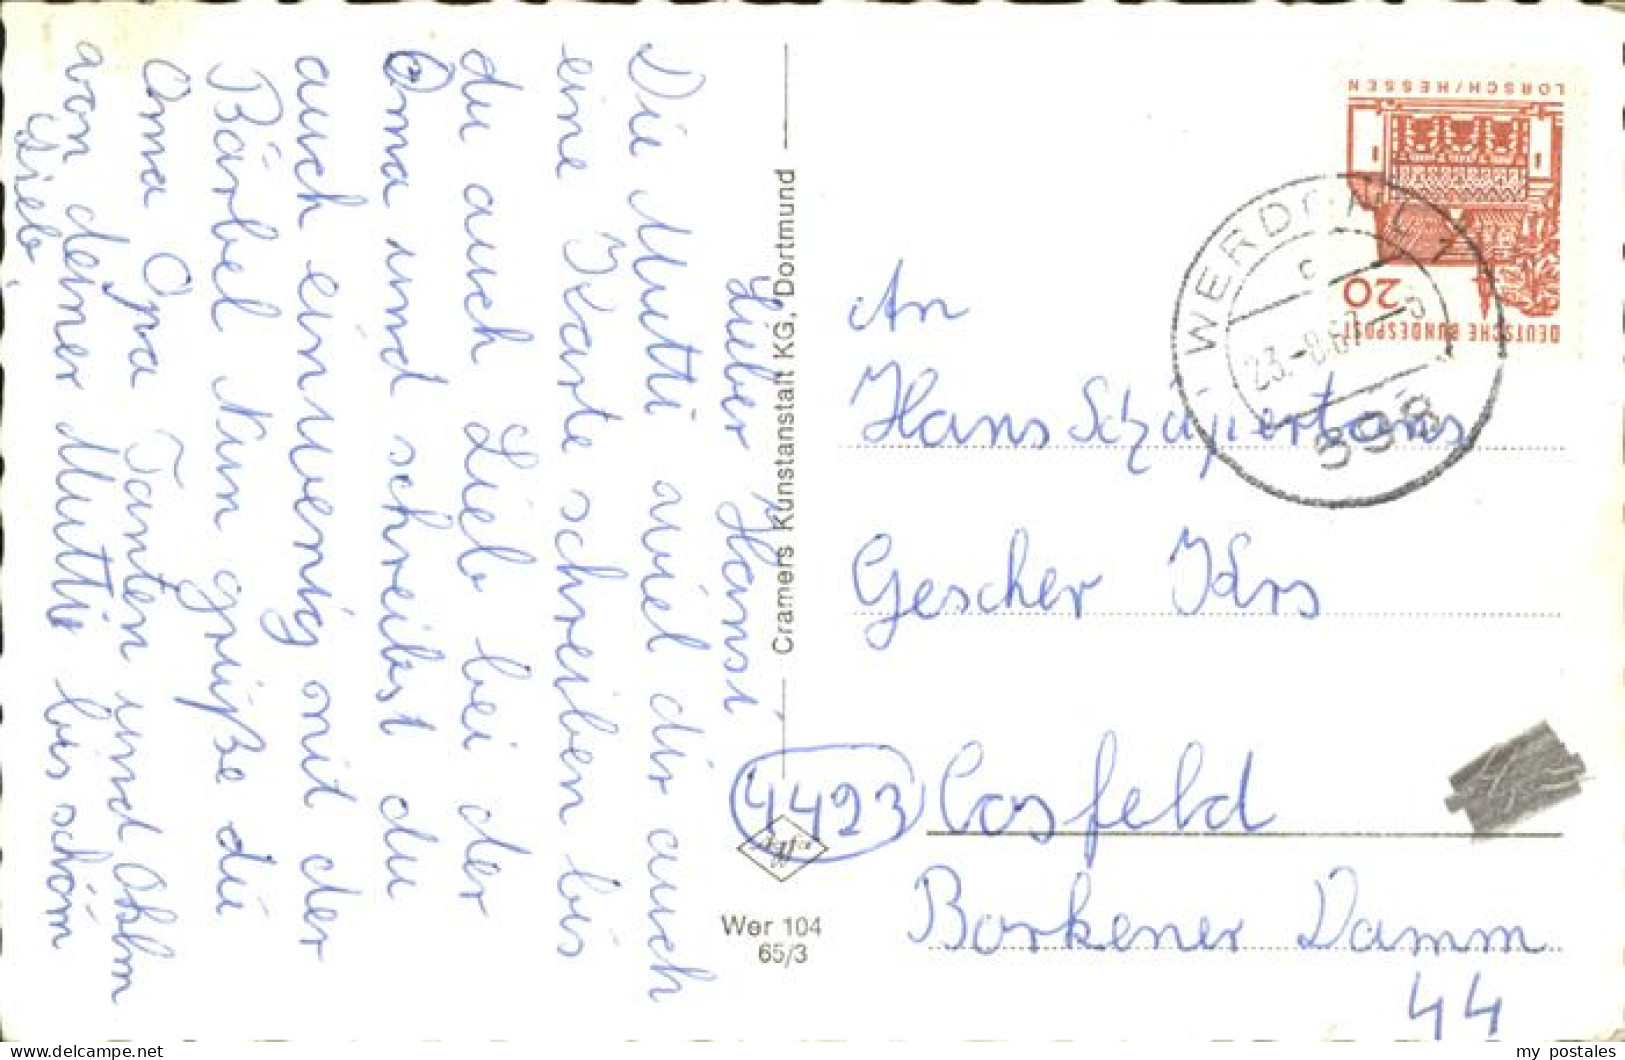 Lieber Hansi
Die Mutti wiel dir auch
eine Karte schreiben bis
du auch Lieb bei der
Oma und schreibst du
auch einwenig mit der
Bärbel Nun grüße du
Oma Opa Tanten und Ohm
von deiner Mutti bis schön
Lieb.
Cramers Kunstanstalt KG, Dortmund
Wer 104
65/3
LORSCH/HESSEN
20
DEUTSCHE BUNDESPOST
WERDOHL 1
c
23.-8.67
598
An
Hans
Gescher Krs
4423 Cosfeld
Borkener Damm
44
my postales